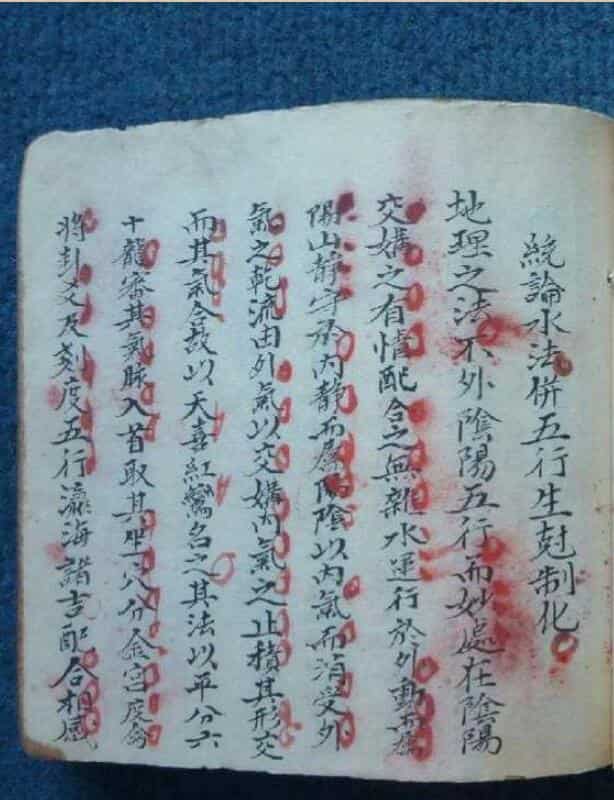 統論水法併五行生尅制化
地理之法不外陰陽五行而妙處在陰陽
交媾之有情配合之無雜水運行於外動而為
陽山静守於内静而為陰陰以内氣而消受外
氣之乾流由外氣以交媾内氣之止積其形交
而其氣合故以天喜紅鸞名之其法以平分六
十龍審其氣脉入首取其坐穴分金宫度
將卦爻及刻度五行瀛海諸吉配合相感